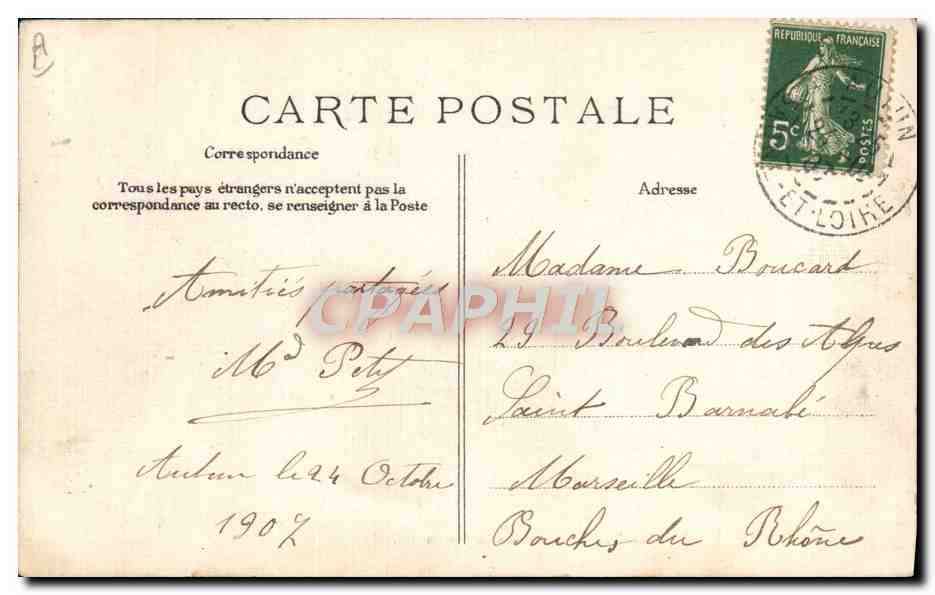 A
RÉPUBLIQUE FRANÇAISE
5c
POSTES
AUTUN
-ET-LOIRE
CARTE POSTALE
Correspondance
Tous les pays étrangers n'acceptent pas la
correspondance au recto, se renseigner à la Poste
Amitiés partagées
Md
Autun le 24 Octobre
1907
CPAPHIL
Adresse
Madame Boucard
29 Boulevard des
Saint Barnabé
Marseille
Bouches du Rhône